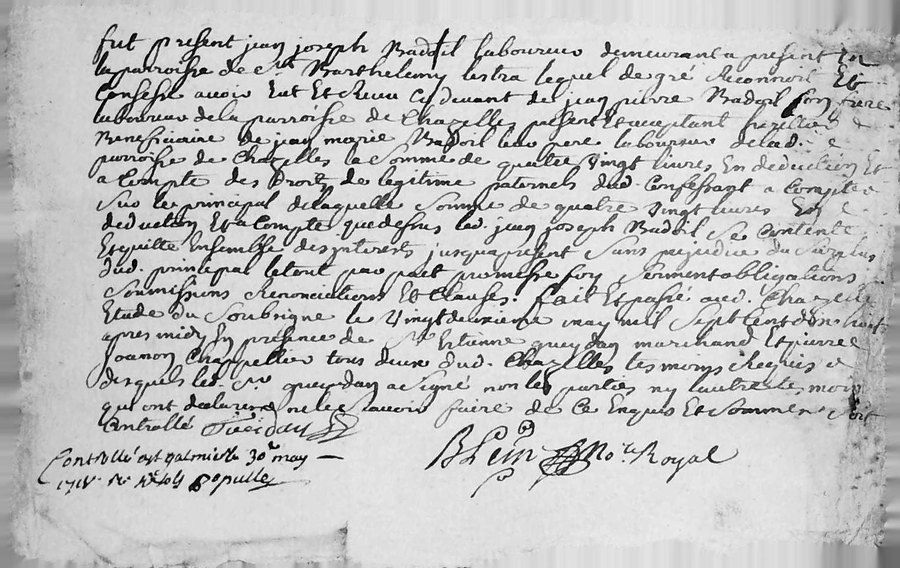 fut present jean joseph Badoil laboureur demeurant a present en
la parroisse de St Barthelemy lestra lequel de gré Reconnoit Et
Confesse avoir Eut Et Receu Cy devant de jean pierre Badoil son frere
laboureur de la parroisse de Chazelles present Et acceptant heritier
Beneficiaire de jean marie Badoil leur pere laboureur de lad.
parroisse de Chazelles la Somme de quatre Vingt livres En deduction Et
a Compte des Droitz de legitime paternels dud. Confessant a Compter
Sur le principal de laquelle Somme de quatre Vingt livres En
deduction Et a Compte que dessus led. jean joseph Badoil Se Contente
Et quitte Ensemble des interests jusqua present Sans prejudice du Surplus
dud. principal le tout par pait promesse foy Serment obligations
Soumissions Renonciations Et Clauses. fait Et passé aud. Chazelles
Etude du Soubsigné le Vingt deuxieme may mil Sept Cent
apres midy En presence de Sr Etienne queydan marchand Et pierre
joanon Chappellier tous deux dud. Chazelles temoins Requis
desquels led. Sr queydan a Signé non les parties ny lautre temoin
qui ont declaré ne le Scavoir faire de Ce Enquis Et Sommés Soit
Controllé Queidan
Controllé a St galmier le 30e may
Blein Nore Royal